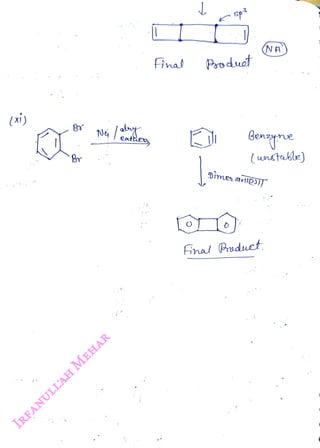 sp³
NA
Final Product
(xi)
Br
Br
Na / dry
Benzyne
(unstable)
Final Product
IRFANULLAH MEHAR